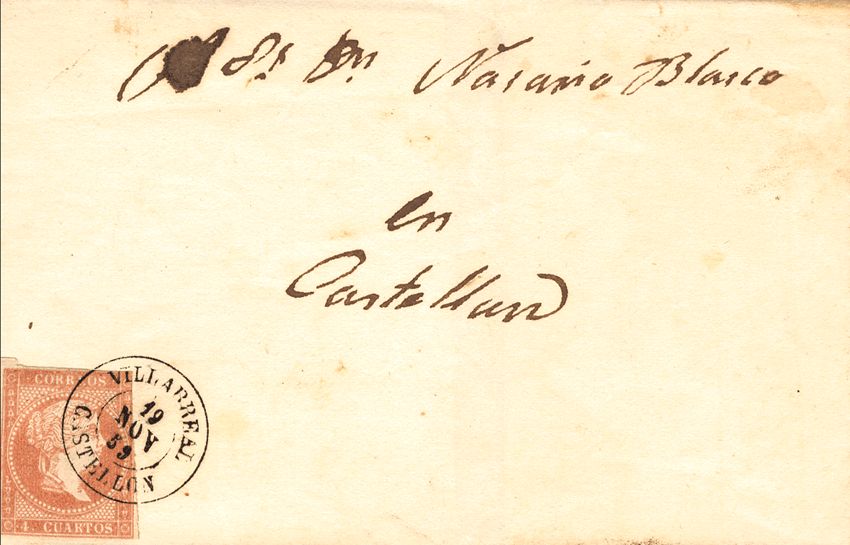 Sr Dn Nasario Blasco
en
Castellon
CORREOS
4. CUARTOS
VILLARREAL
19
NOV
59
CASTELLON